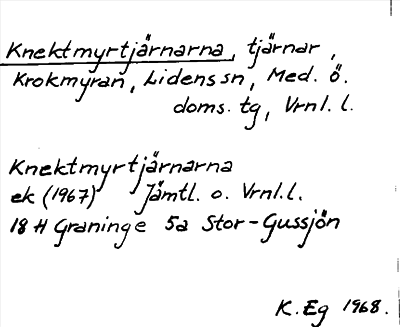 Knektmyrtjärnarna, tjärnar,
Krokmyran, Lidens sn, Med. ö.
doms. tg, Vrnl. l.
Knektmyrtjärnarna
ek (1967) Jämtl. o. Vrnl. l.
18 H Graninge 5a Stor-Gussjön
K. Eg 1968.